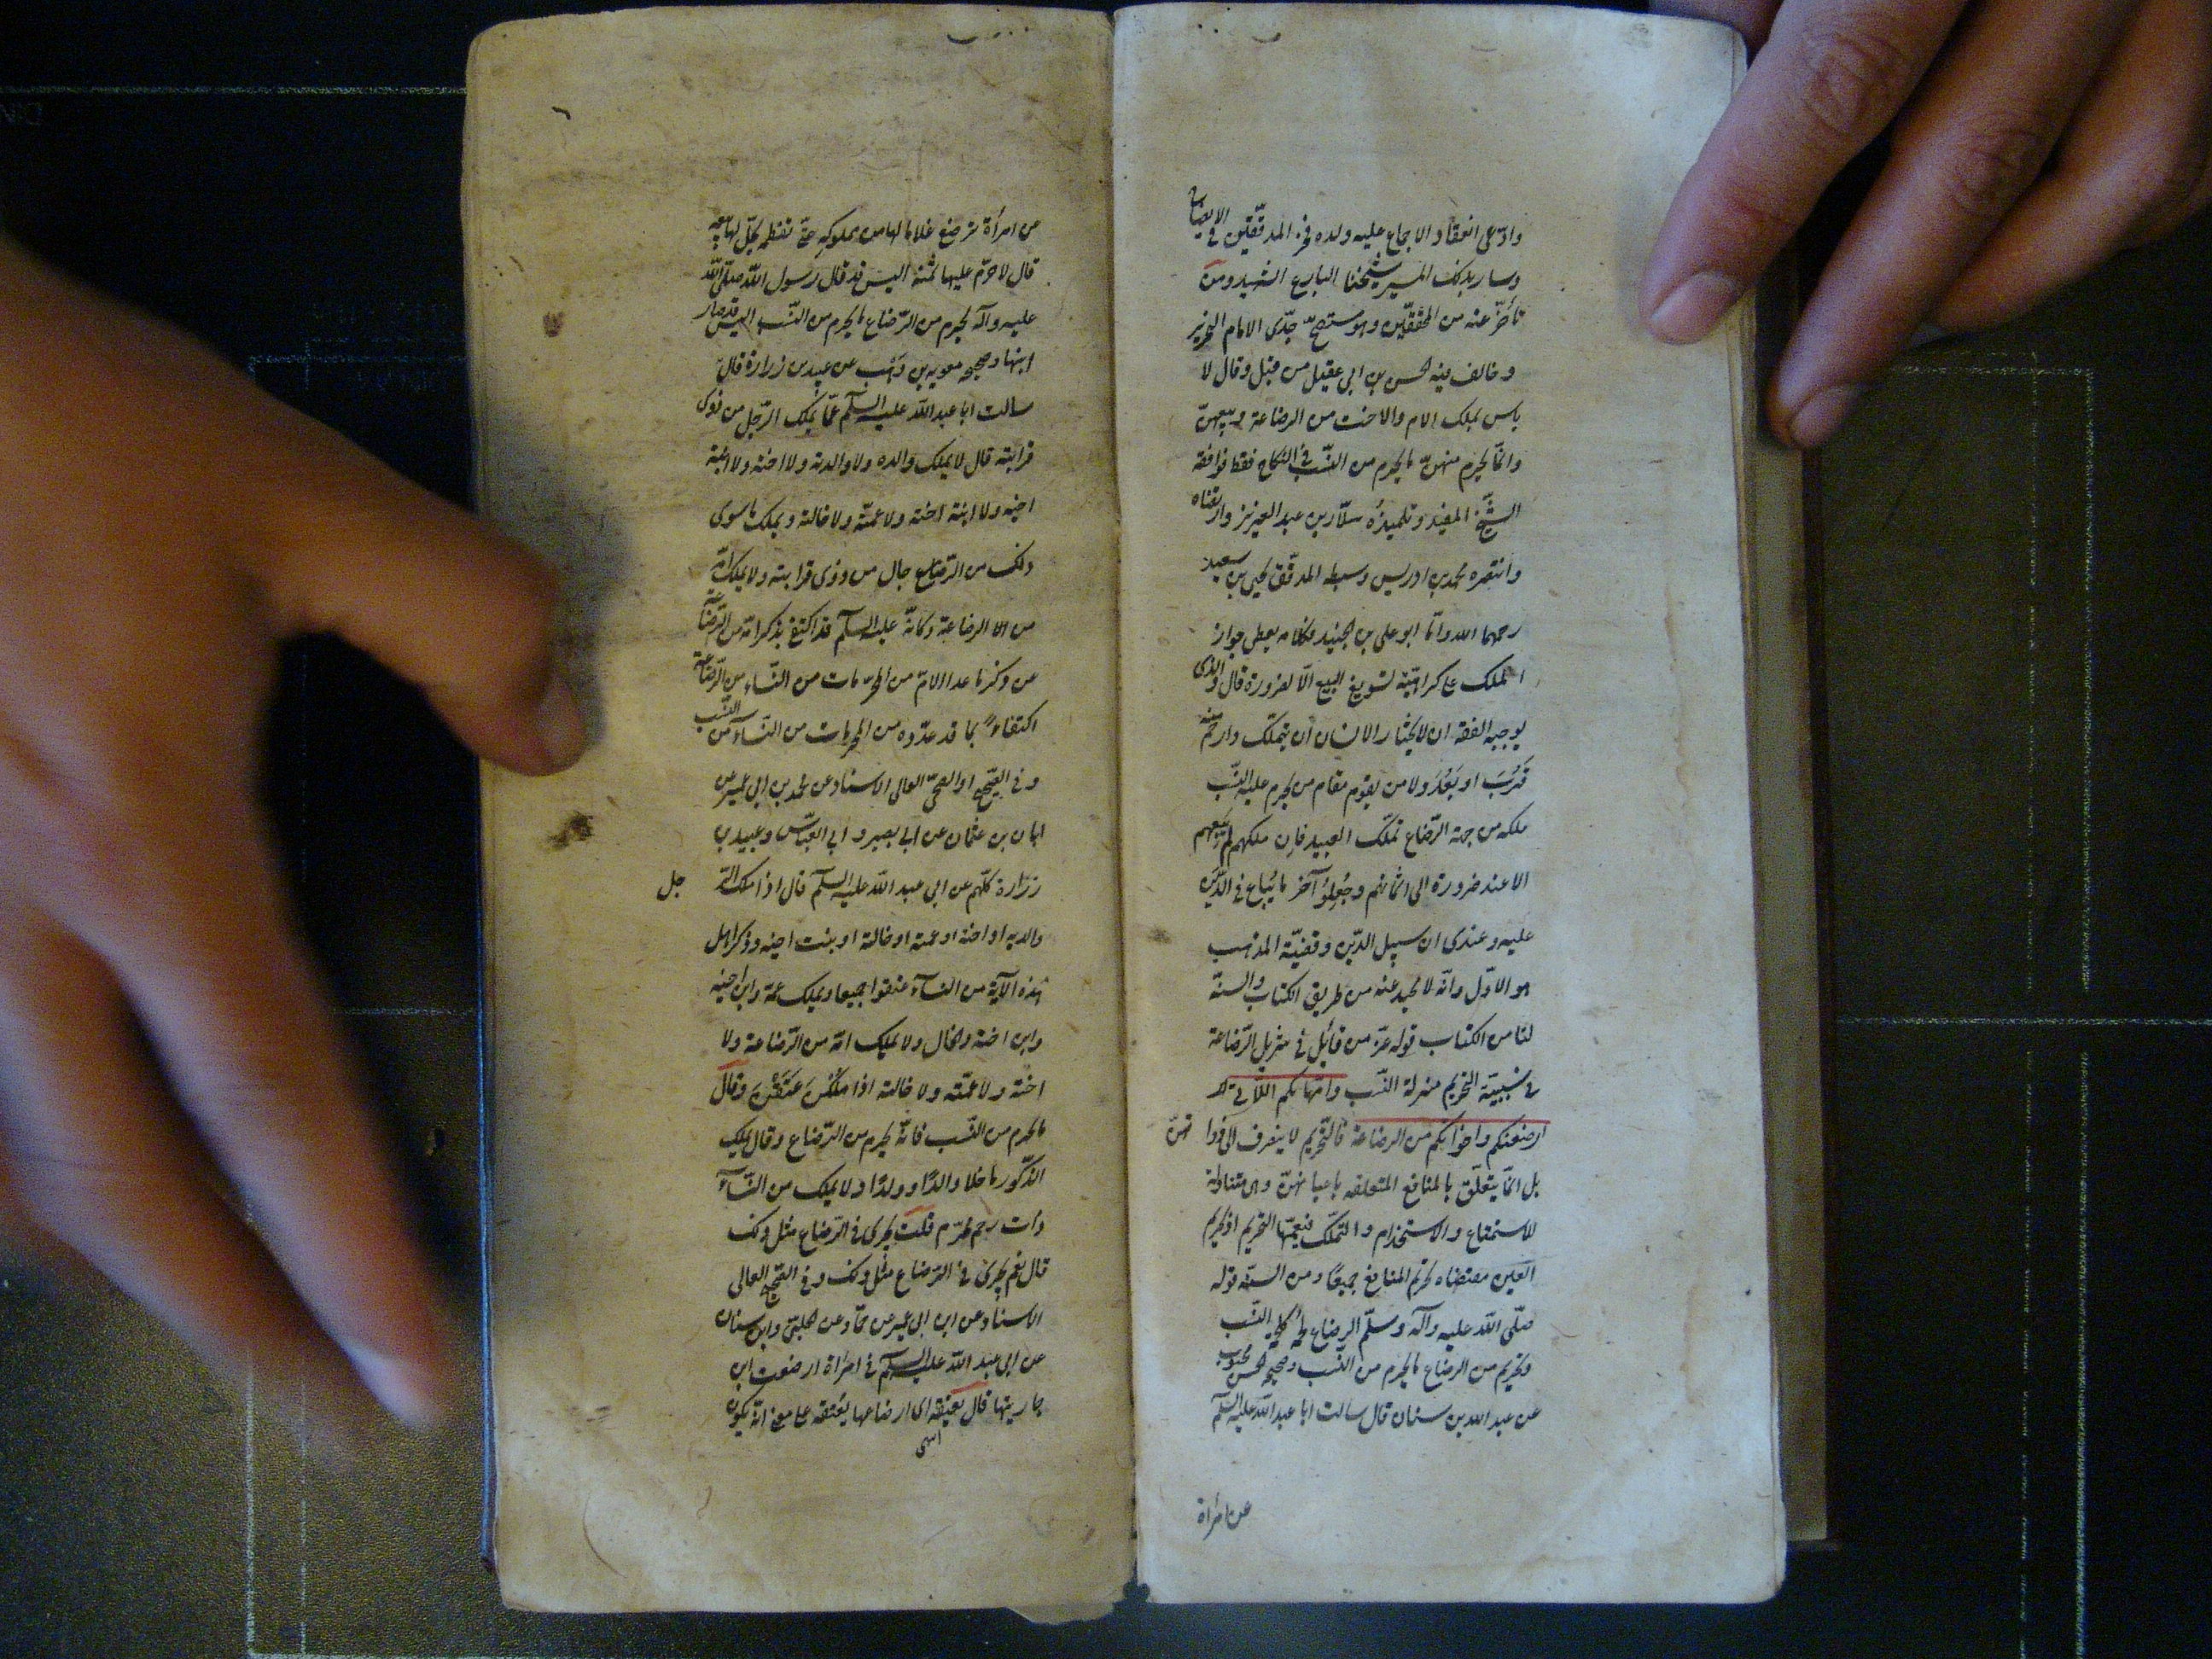 وادّعى انعقاد الاجماع عليه ولده فخر المدقّقين في الايضاح
وسار بذلك المسير شيخنا البارع الشهيد ومن
تأخّر عنه من المحقّقين وهو مستصحّ جدّى الامام النحرير
وخالف فيه الحسن بن ابى عقيل من قبل وقال لا
باس بملك الام والاخت من الرضاعة وبيعهنّ
وانّما يحرم منهنّ ما يحرم من النّسب في النكاح فقط فوافقه
الشّيخ المفيد وتلميذه سلّار بن عبد العزيز وارتضاه
وانتصره محمد بن ادريس وسبطه المدقّق يحيى بن سعيد
رحمهما الله وامّا ابو على بن الجنيد فكلامه يعطى جواز
الملك على كراهيّة لتسويغ البيع الّا لضرورة قال والذى
يوجبه الفقه ان لا يختار الانسان أن يتملّك ذا رحم منه
قَرُبَ او بَعُدَ ولا من يقوم مقام من يحرم عليه بالنّسب
ملكه من جهة الرّضاع تملّك العبيد فان ملكهم لم يبعهم
الا عند ضرورة الى اثمانهم وجُعِلوُا آخر ما يُباع في الدَّين
عليه وعندى ان سبيل الدّين وقضيّة المذهب
هو الاوّل وانّه لا محيد عنه من طريق الكتاب والسنّة
لنا من الكتاب قوله عزّ من قائل في تنزيل الرّضاعة
في سببيّة التحريم منزلة النّسب وامّهاتكم اللّاتي
ارضعنكم واخواتكم من الرضاعة فالتّحريم لا ينصرف الى ذواتهنّ
بل انّما يتعلّق بالمنافع المتعلقه باعيانهنّ وهى متناولة
للاستمتاع والاستخدام والتملّك فيعمّها التحريم اذ تحريم
العين مقتضاه تحريم المنافع جميعًا ومن السنّة قوله
صلّى الله عليه وآله وسلّم الرضاع لحمة كلحمة النّسب
ويحرم من الرضاع ما يحرم من النّسب وصحيحة الحسن بن محبوب
عن عبد الله بن سنان قال سالت ابا عبد الله عليه السّلم
عن امرأة
من امرأة ترضع غلاما لها من مملوكه حتّى تفطمه يحلّ لها بيعه
قال لا حرّم عليها ثمنه اليس قد قال رسول الله صلّى الله
عليه وآله يحرم من الرّضاع ما يحرم من النّسب اليس قد صار
ابنها وصحيحة معويه بن وَهَب عن عبيد بن زرارة قال
سالت ابا عبد الله عليه السّلم عمّا يملك الرّجل من ذوى
قرابته قال لا يملك والده ولا والدته ولا اخته ولا ابنة
اخيه ولا ابنة اخته ولا عمّته ولا خالته ويملك ما سوى
ذلك من الرّجال من ذوى قرابته ولا يملك امّه
من الرضاعة وكانّه عليه السّلم قد اكتفى بذكر امّه من الرّضاعة
عن ذكر ما عدا الامّ من المحرّمات من النّساء من الرّضاعة
اكتفاءً بما قد عدّده من المحرمات من النّساء من النّسب
وفي الصّحيح او الصحّى العالى الاسناد عن محمد بن ابى عمير عن
ابان بن عثمان عن ابى بصير و ابى العبّاس وعبيد بن
زرارة كلّهم عن ابى عبد الله عليه السّلم قال اذا ملك الرّجل
والديه او اخته او عمته او خالته او بنت اخيه وذكر اهل
هذه الآية من النساء عتقوا جميعا ويملك عمه وابن اخيه
وابن اخته والخال ولا يملك امّه من الرّضاعة ولا
اخته ولا عمّته ولا خالته اذا ملكهنّ عَتَقْنَ وقال
ما يحرم من النّسب فانّه يحرم من الرّضاع وقال يملك
الذّكور ما خلا والدًا وولدًا ولا يملك من النّساء
ذات رحم محرّم قلت يجرى في الرّضاع مثل ذلك
قال نعم يجرى في الرّضاع مثل ذلك وفي الصّحيح العالى
الاسناد عن ابن ابى عمير عن حمّاد عن الحلبى وابن سنان
عن ابى عبد الله عليه السّلم في امرأة ارضعت ابن
جاريتها قال تعتقه اى ارضاعها يُعتقه على معنى انّه يكون